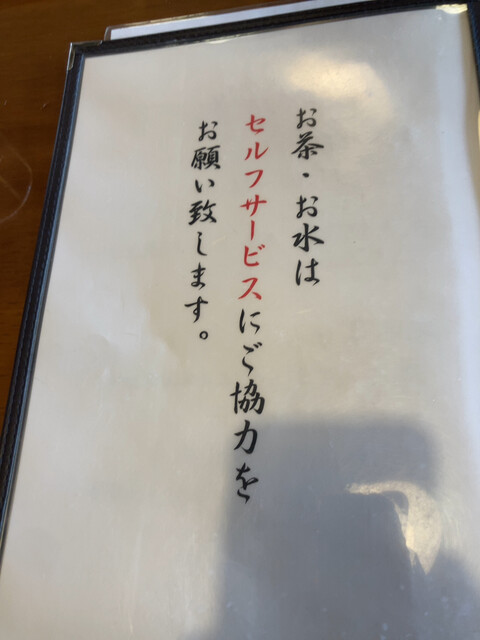 お茶・お水は
セルフサービスにご協力を
お願い致します。